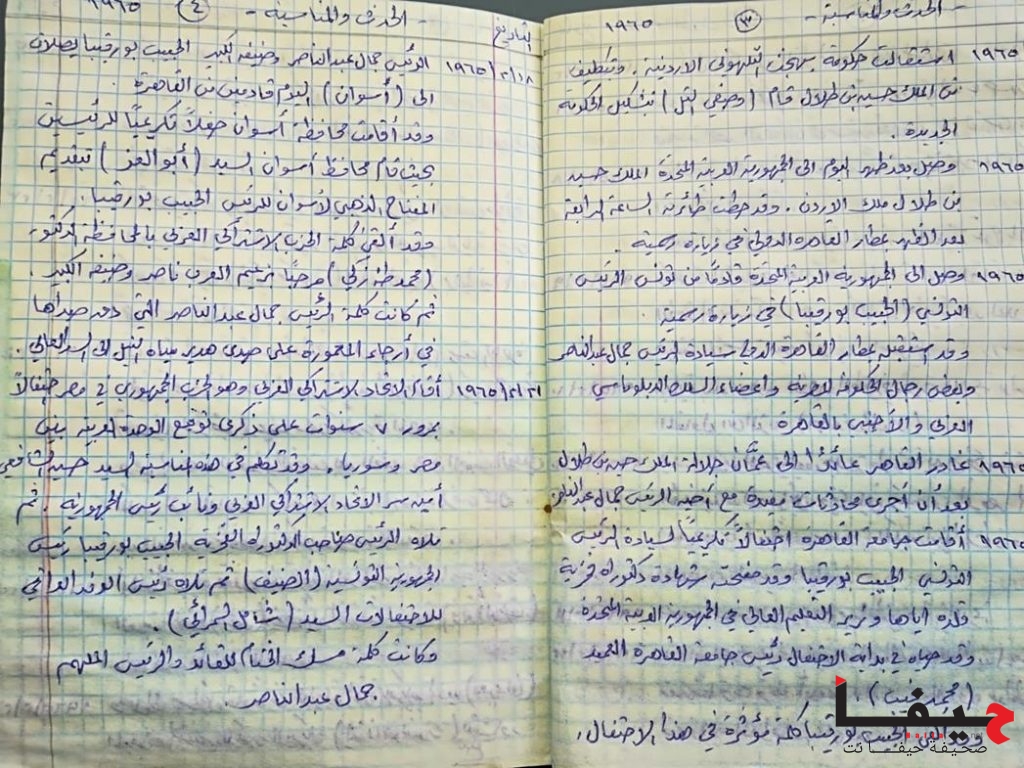 - الحدث والمناسبة -
٣
١٩٦٥
١٩٦٥ استقالت حكومة بهجت التلهوني الاردنية. وتكليف
من الملك حسين بن طلال قام (وصفي التل) بتشكيل الحكومة
الجديدة.
١٩٦٥ وصل بعد ظهر اليوم الى الجمهورية العربية المتحدة الملك حسين
بن طلال ملك الاردن. وقد حطت طائرته الساعة الرابعة
بعد الظهر بمطار القاهرة الدولي في زيارة رسمية.
١٩٦٥ وصل الى الجمهورية العربية المتحدة قادمًا من تونس الرئيس
التونسي (الحبيب بورقيبا) في زيارة رسمية.
وقد استقبله بمطار القاهرة الدولي سيادة الرئيس جمال عبد الناصر
وبعض رجال الحكومة المصرية وأعضاء السلك الدبلوماسي
العربي والأجنبي بالقاهرة
١٩٦٥ غادر القاهر عائدًا الى عمَّان جلالة الملك حسين بن طلال
بعد أن أجرى محادثات مفيدة مع أخيه الرئيس جمال عبد الناصر
١٩٦٥ أقامت جامعة القاهرة احتفالاً تكريميًا لسيادة الرئيس
التونسي الحبيب بورقيبا وقد منحته شهادة دكتوراه فخرية
قلده اياها وزير التعليم العالي في الجمهورية العربية المتحدة
وقد حياه في بداية الاحتفال رئيس جامعة القاهرة العميد
(محمد نجيب).
وقد القى الحبيب بورقيبا كلمة مؤثرة في هذا الاحتفال.
التاريخ
- الحدث والمناسبة -
٤
١٩٦٥
١٩٦٥/٢/١٨ الرئيس جمال عبد الناصر وضيفه الكبير الحبيب بورقيبا يصلان
الى (أسوان) اليوم قادمين من القاهرة.
وقد أقامت محافظة أسوان حفلاً تكريميًا للرئيسين
بحيث قام محافظ أسوان السيد (أبو العز) بتقديم
المفتاح الذهبي لأسوان للرئيس الحبيب بورقيبا.
وقد ألقى كلمة الحزب الاشتراكي العربي بالمحافظة الدكتور
(محمد طه زكي) مرحبًا بزعيم العرب ناصر وضيفه الكبير.
ثم كانت كلمة الرئيس جمال عبد الناصر التي دوى صداها
في أرجاء المعمورة على صدى هدير مياه النيل الى السد العالي.
١٩٦٥/٢/٢١ أقام الاتحاد الاشتراكي العربي وهو الحزب الجمهوري في مصر احتفالاً
بمرور ٧ سنوات على ذكرى توقيع الوحدة العربية بين
مصر وسوريا. وقد تكلم في هذه المناسبة السيد حسين الشافعي
أمين سر الاتحاد الاشتراكي العربي ونائب رئيس الجمهورية. ثم
تلاه الرئيس صاحب الدكتوراه الفخرية الحبيب بورقيبا رئيس
الجمهورية التونسية (الضيف) ثم تلاه رئيس الوفد العراقي
للاحتفالات السيد (شامل السامرائي).
وكانت كلمة مسك الختام للقائد والرئيس الملهم
جمال عبد الناصر.
حيفا
صحيفة حيفا نت